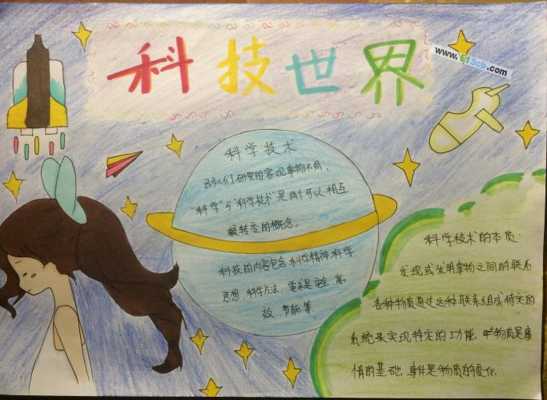 科技世界
科学技术
我们研究的客观事物不同,
"科学"与"科学技术"是两个可以相互
转变的概念。
科技的内容包含科学精神 科学
思想 科学方法
节能等
科学技术的本质:
发现或发明事物之间的联系
各种物质通过这种联系组成特定的
系统来实现特定的功能
的基础 事件是物质的变化